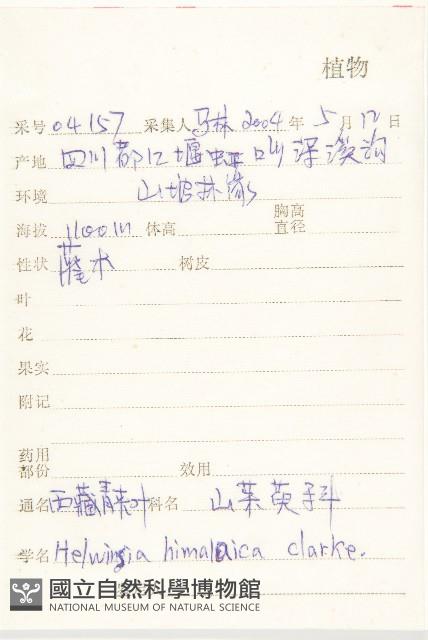 植物
采号 04157 采集人 马林 2004 年 5 月 12 日
产地 四川都江堰虹口 深溪沟
环境 山坡林缘
海拔 1100m 体高 胸高直径
性状 灌木 树皮
叶
花
果实
附记
药用部份 效用
通名 西藏青荚叶 科名 山茱萸科
学名 Helwingia himalaica clarke.
國立自然科學博物館
NATIONAL MUSEUM OF NATURAL SCIENCE